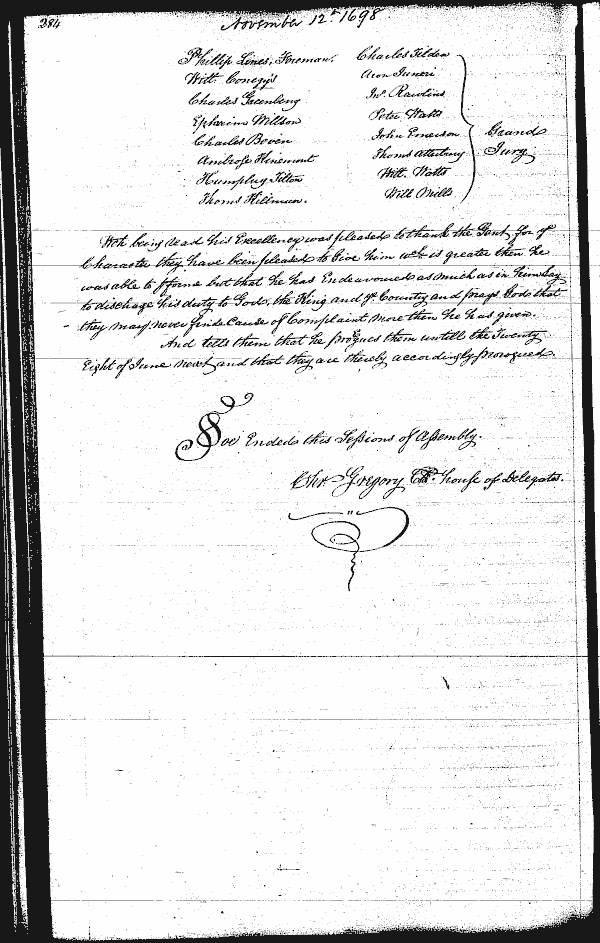 384
November 12th 1698
Phillip Lines, Foreman. Charles Tilden
Will. Charles Greenberry Jno. Rawlins
Ephraim Willson Peter Watts
Charles Boven John Emerson
Ambrose Kinemont Thoms Atterbury
Humphry Tilton Will. Watts
Thoms Hillman. Will Mills
Grand
Jury
Wch being read his Excellency was pleased to thank the Gent. for ye
Character they have been pleased to Give him wch is greater then he
was able to pforme but that he has Endeavoured as much as in him lay
to discharge his duty to God, the King and ye Country and prays God that
they may never finde Cause of Complaint more then he has given.
And tells them that he progues them untill the Twenty
Eight of June next and that they are thereby accordingly prorogued.
Soe Ended this Sessions of Assembly.
Chr. Gregory Clk. house of Delegates.